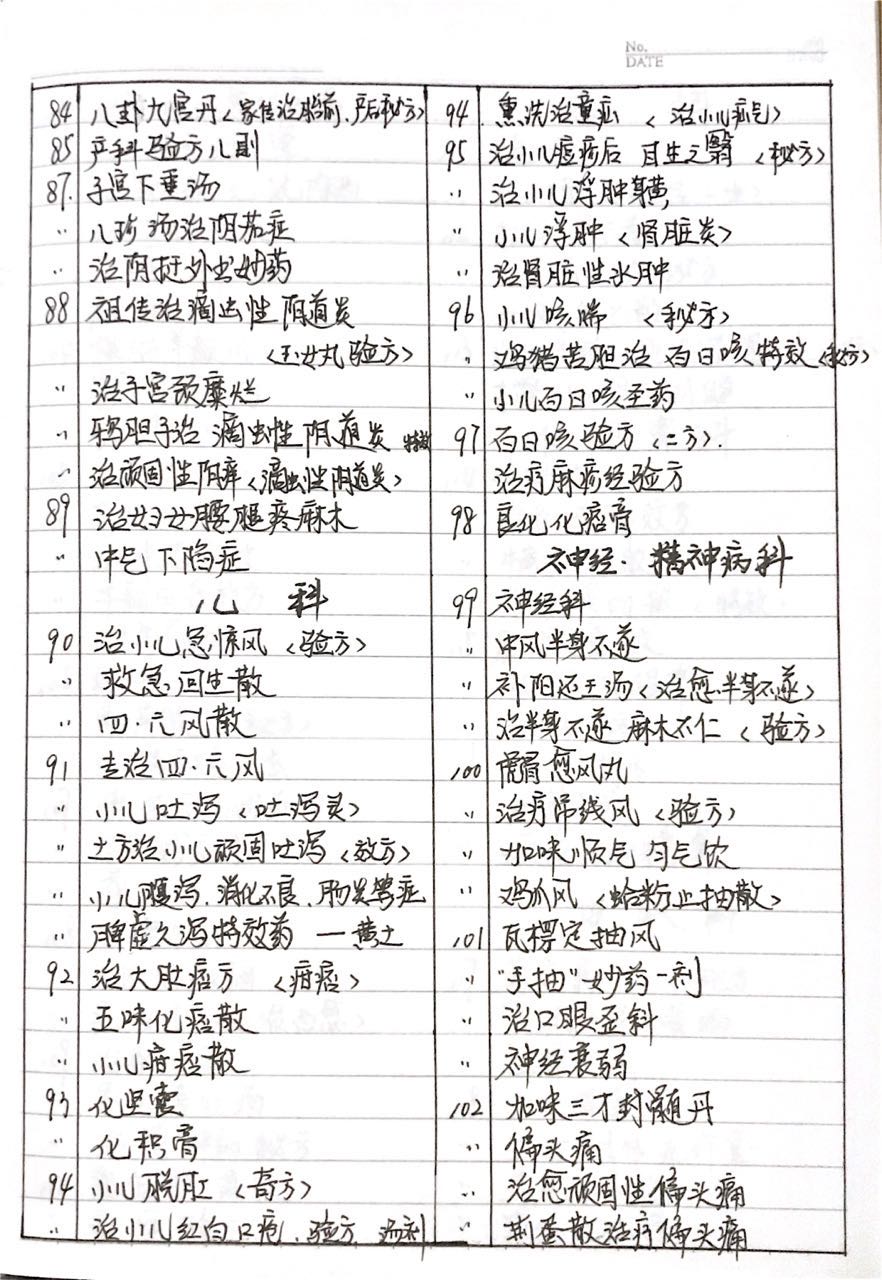 No.
DATE
84 八卦九宫丹〈家传治胎前、产后秘方〉
85 产科验方八则
87. 子宫下垂汤
〃 八珍汤治阴茄症
〃 治阴挺外出妙药
88 祖传治滴虫性阴道炎
〈玉女丸验方〉
〃 治子宫颈糜烂
〃 鸦胆子治滴虫性阴道炎 特效
〃 治顽固性阴痒〈滴虫性阴道炎〉
89 治妇女腰腿疼麻木
〃 中气下陷症
儿 科
90 治小儿急惊风〈验方〉
〃 救急回生散
〃 四·六风散
91 专治四·六风
〃 小儿吐泻〈吐泻灵〉
〃 土方治小儿顽固吐泻〈效方〉
〃 小儿腹泻、消化不良、肠炎等症
〃 脾虚久泻特效药 一黄土
92 治大肚痞方 〈疳痞〉
〃 五味化痞散
〃 小儿疳痞散
93 化坚膏
〃 化积膏
94 小儿脱肛 〈奇方〉
〃 治小儿红白口疮、验方 汤剂
94 熏洗治童疝 〈治小儿疝气〉
95 治小儿痘疹后目生之翳 〈秘方〉
〃 治小儿浮肿黄
〃 小儿浮肿〈肾脏炎〉
〃 治肾脏性水肿
96 小儿咳喘 〈秘方〉
〃 鸡猪苦胆治百日咳特效〈秘方〉
〃 小儿百日咳圣药
97 百日咳验方〈二方〉.
治疗麻疹经验方
98 良化化痞膏
神经·精神病科
99 神经科
〃 中风半身不遂
〃 补阳还五汤〈治愈半身不遂〉
〃 治半身不遂麻木不仁〈验方〉
100 虎骨愈风丸
〃 治疗吊线风〈验方〉
〃 加味顺气匀气饮
〃 鸡爪风〈蛤粉止抽散〉
101 瓦楞定抽风
〃 "手抽"妙药一剂
〃 治口眼歪斜
〃 神经衰弱
102 加味三才封髓丹
〃 偏头痛
〃 治愈顽固性偏头痛
〃 荆蚕散治疗偏头痛